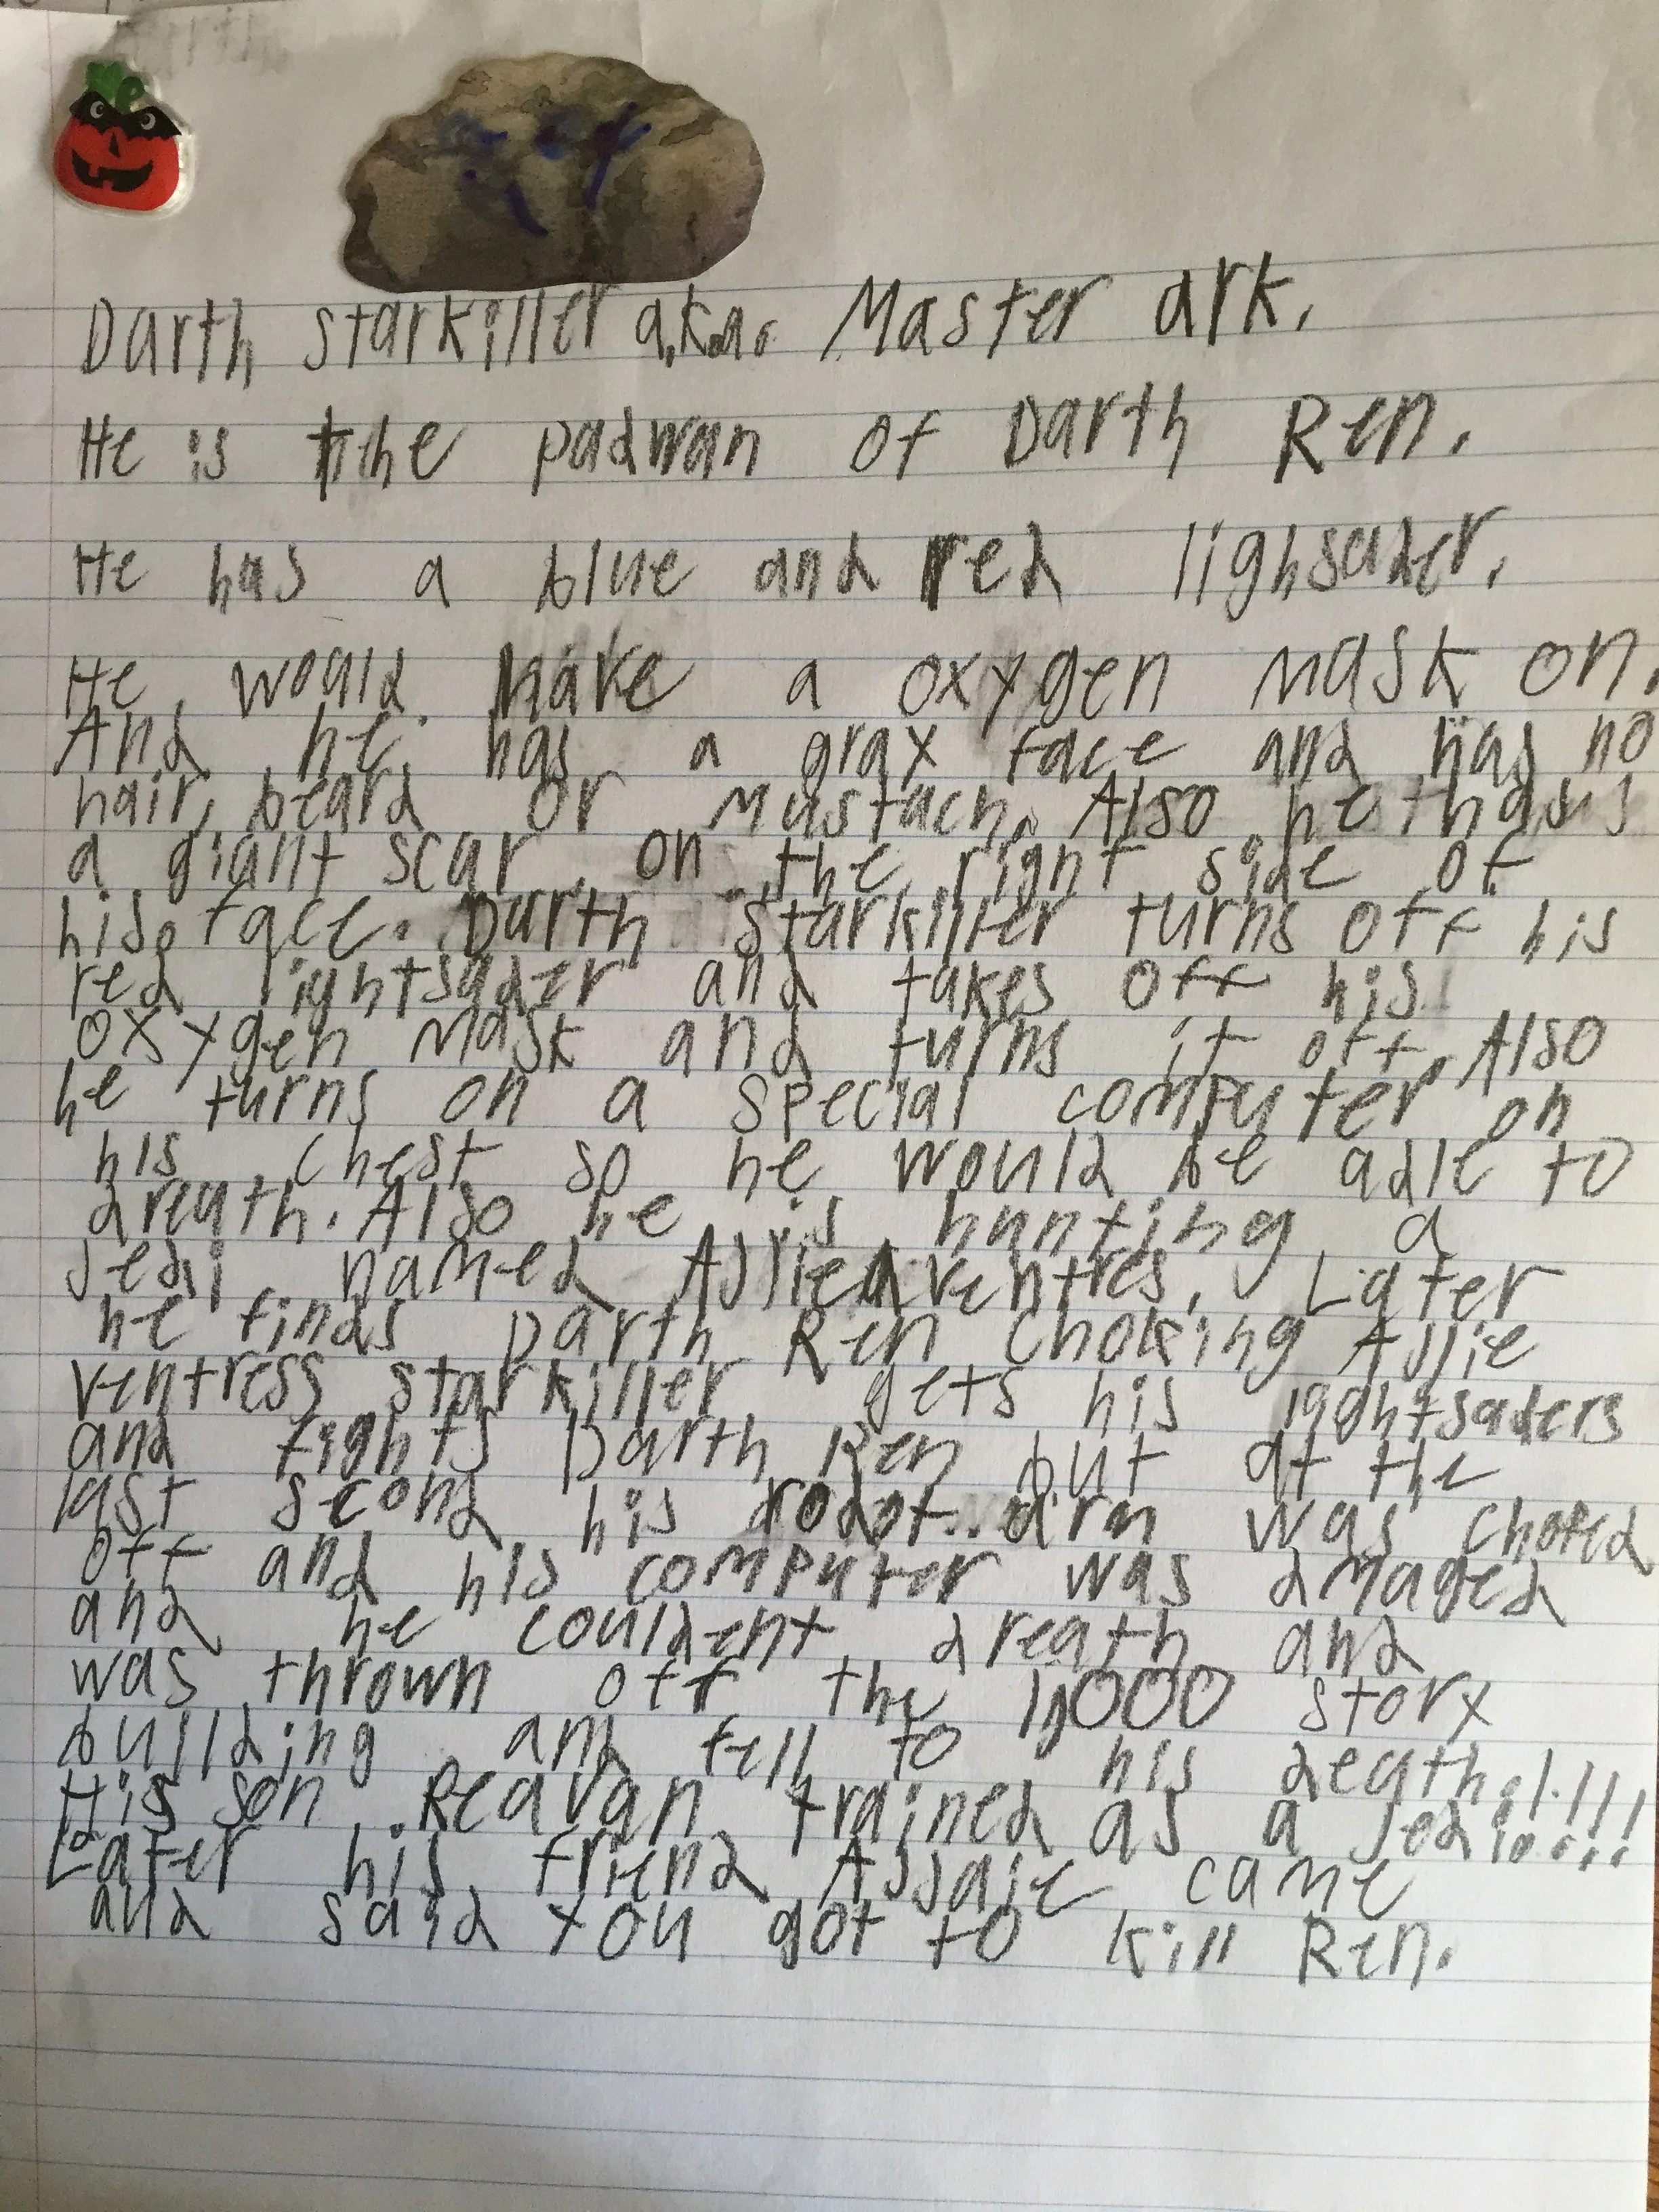 Darth starkiller a.k.a. Master ark.
He is the padwan of Darth Ren.
He has a blue and red lighsaber.
He would make a oxygen mask on.
And he has a gray face and has no
hair, beard or mustach. Also he has
a giant scar on the right side of
his face. Darth starkiller turns off his
red lightsaber and takes off his
oxygen mask and turns it off. Also
he turns on a special computer on
his chest so he would be able to
breath. Also he is hunting a
Jedi named ventres. Later
he finds Darth Ren choking Ajjie
ventress starkiller gets his lightsabers
and fights Darth Ren but at the
last second his robot arm was choped
off and his computer was dmaged
and he couldent breath and
was thrown off the story
building and fell to his death.!.!!!
His son Reavan trained as a Jedi
Later his friend Assaje came
and said you got to kill Ren.